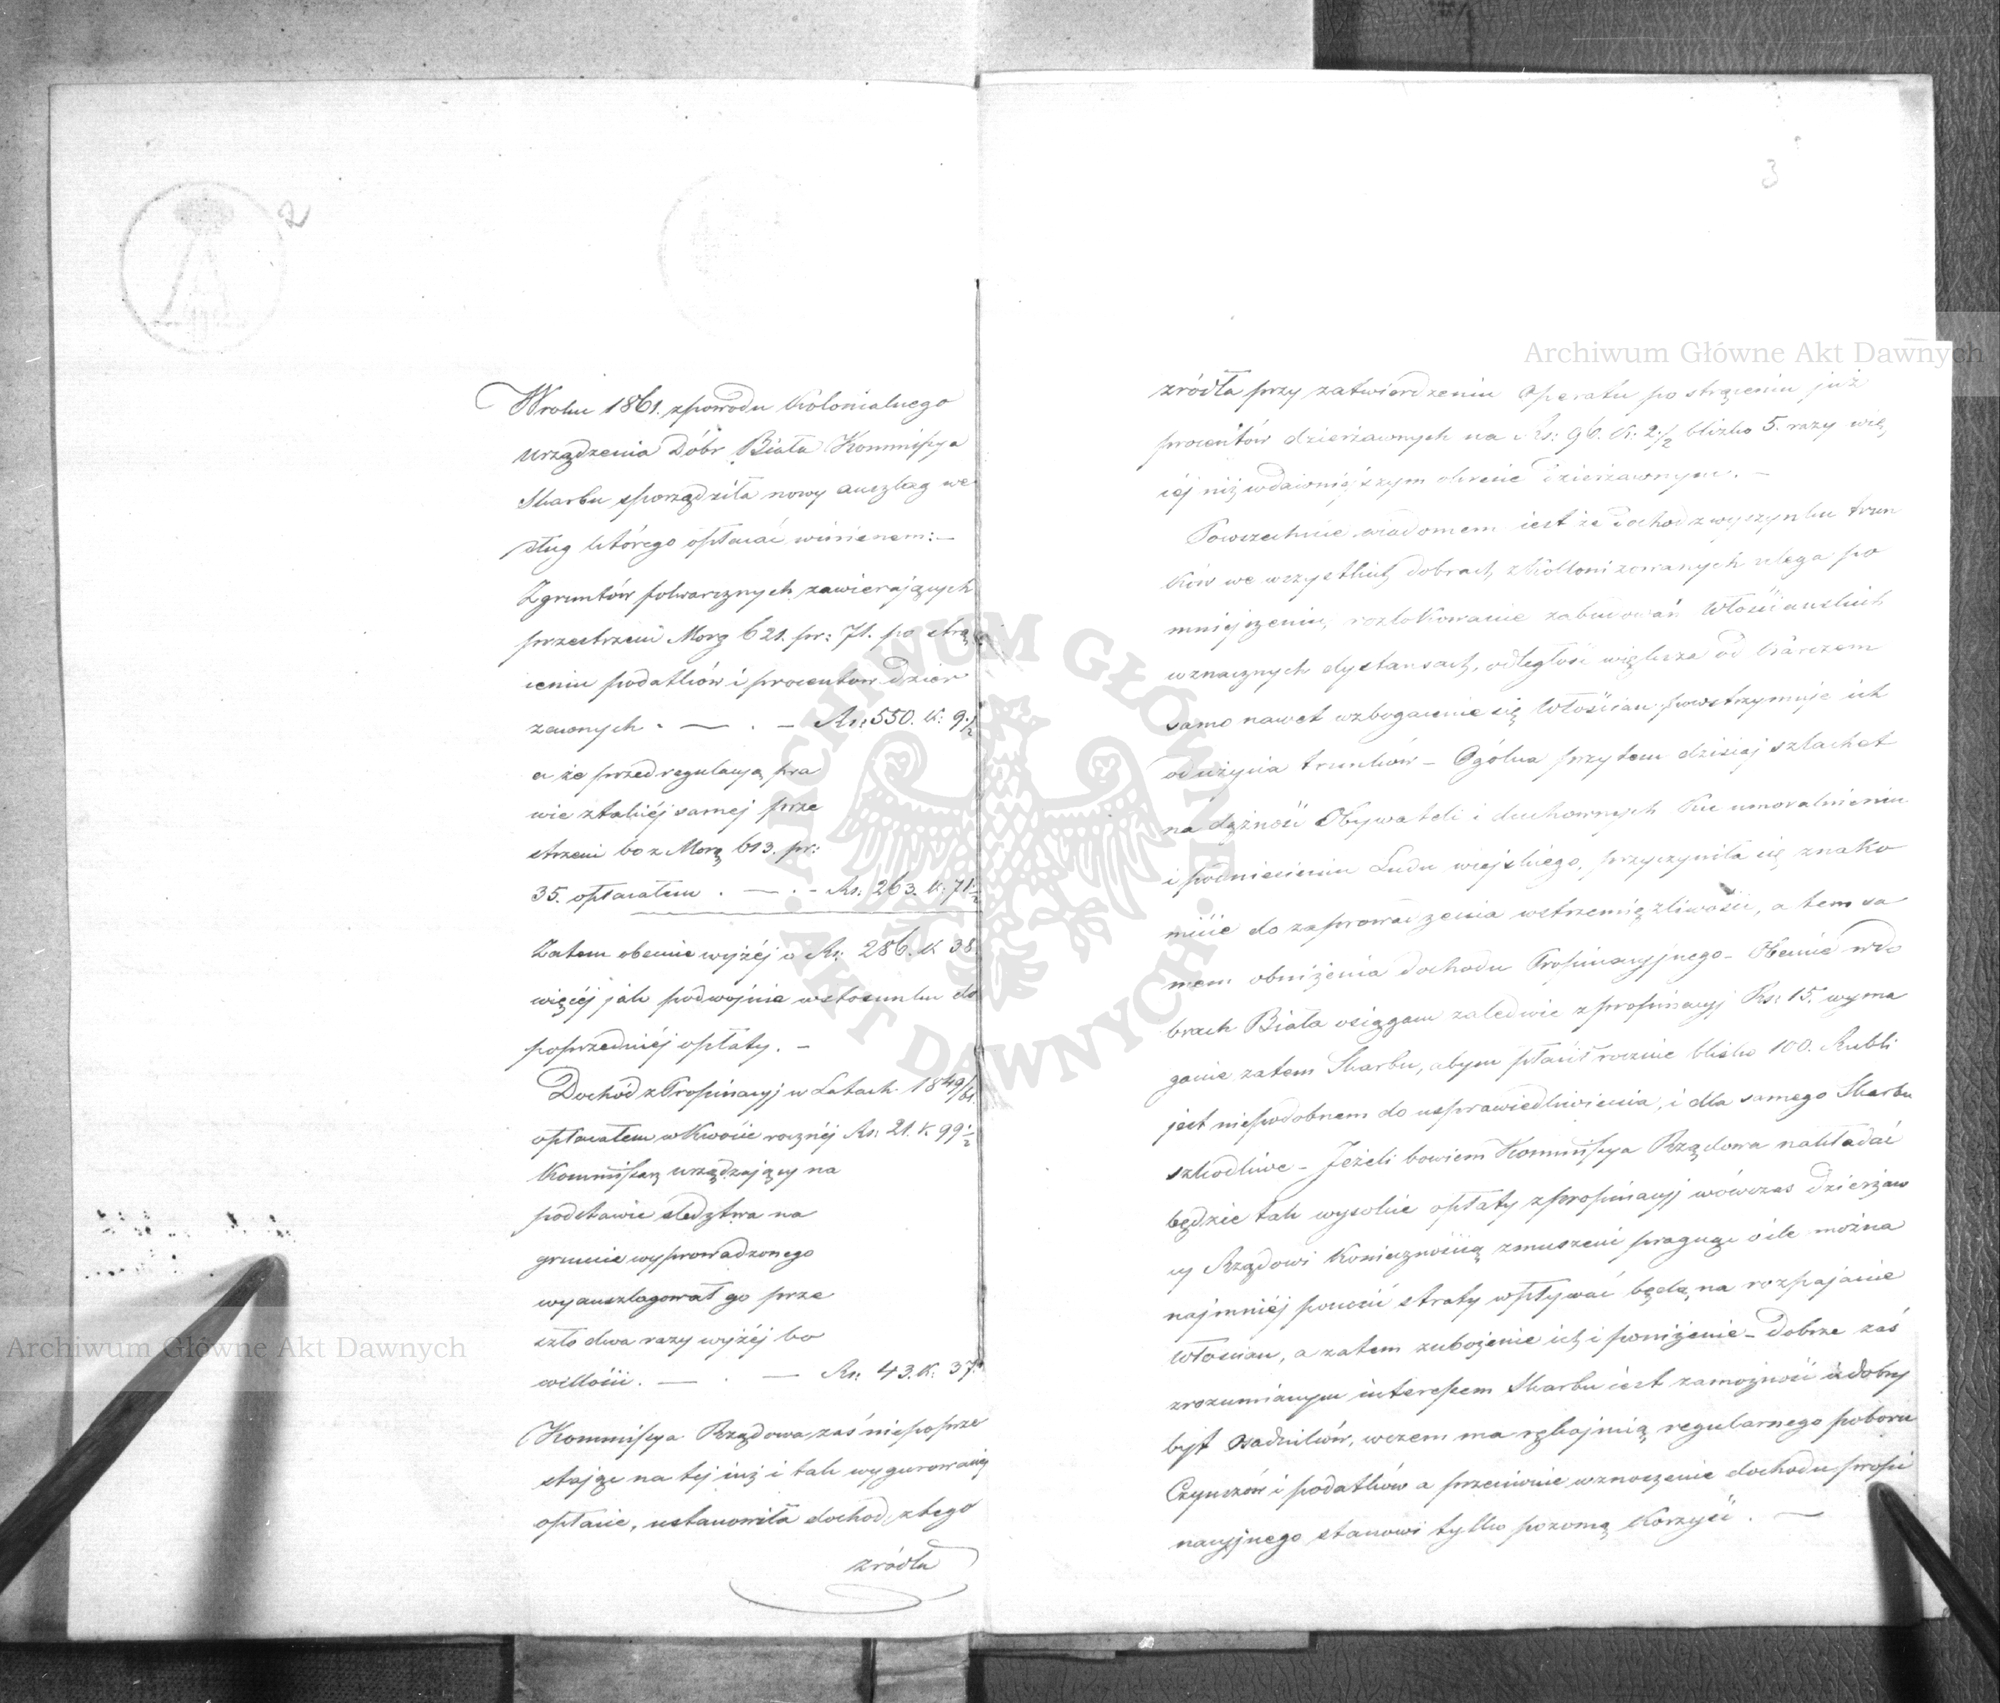 2
Wroku 1861. zpowodu Kolonialnego
urządzenia Dóbr Biała Kommissya
Skarbu sporządziła nowy auszlag we
dług którego opłacać winienem:—
Zgruntów folwarcznych zawierających
przestrzeni Morg 621. pr: 71. po strą
ceniu podatków i procentów dzier
żawnych . — . — Rs: 550. K: 9 1/2
a że przed regulacyą pra
wie ztakiéj samej prze
strzeni bo z Morg 613. pr:
35. opłacałem . — . — Rs. 263. K: 71 1/2
Zatem obecnie wyżéj o Rs. 286. K 38
więcéj jak podwójnie wstosunku do
poprzedniéj opłaty. —
Dochód z Propinacyj w Latach 1849/61.
opłacałem w Kwocie rocznéj Rs: 21. K. 99 1/2
Kommissarz urządzający na
podstawie śledztwa na
gruncie wyprowadzonego
wyauszlagował go prze
szło dwa razy wyżéj bo
willości. — . — Rs. 43. K. 37.
Kommissya Rządowa zaś niepoprze
stając na tej już i tak wygurowanéj
opłacie, ustanowiła dochód ztego
źródła
3
źródła przy zatwierdzeniu Operatu po strąceniu już
procentów dzierżawnych na Rs: 96. K: 2 1/2 blizko 5. razy wię
céj niż wdawniéjszym okresie dzierżawnym. —
Powszechnie wiadomem jest że dochód z wyszynku trun
ków we wszystkich dobrach zkolonizowanych ulega po
mniejszeniu, rozlokowanie zabudowań Włościańskich
wznacznych dystansach, odległość większa od karczem
samo nawet wzbogacenie się Włościan powstrzymuje ich
od użycia trunków — Ogólna przytem dzisiaj szlachet
na dążność Obywateli i duchownych ku umoralnieniu
i podniesieniu Ludu wiejskiego, przyczyniła się znako
micie do zaprowadzenia wstrzemięźliwości, a tem sa
mem obniżenia dochodu Propinacyjnego — Obecnie w do
brach Biała osiągam zaledwie z propinacyj Rs: 15. wyma
ganie zatem Skarbu, abym płacił rocznie blisko 100. Rubli
jest niepodobnem do usprawiedliwienia, i dla samego Skarbu
szkodliwe — Jeżeli bowiem Kommissya Rządowa nakładać
będzie tak wysokie opłaty z propinacyj wówczas dzierżaw
cy Rządowi Koniecznością zmuszeni pragnąc o ile można
najmniéj ponosić straty wpływać będą na rozpajanie
Włościan, a zatem zubożenie ich i poniżenie — Dobrze zaś
zrozumianym interesem Skarbu jest zamożność i dobry
byt Osadników, wczem ma rękojmią regularnego poboru
Czynszów i podatków a przeciwnie wznoszenie dochodu propi
nacyjnego stanowi tylko pozorną Korzyść. —
Archiwum Główne Akt Dawnych
Archiwum Główne Akt Dawnych
ARCHIWUM GŁÓWNE AKT DAWNYCH